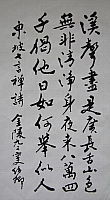 溪聲盡是廣長舌山色
無非清淨身夜來八萬四
千偈他日如何舉似人
東坡七言禪詩